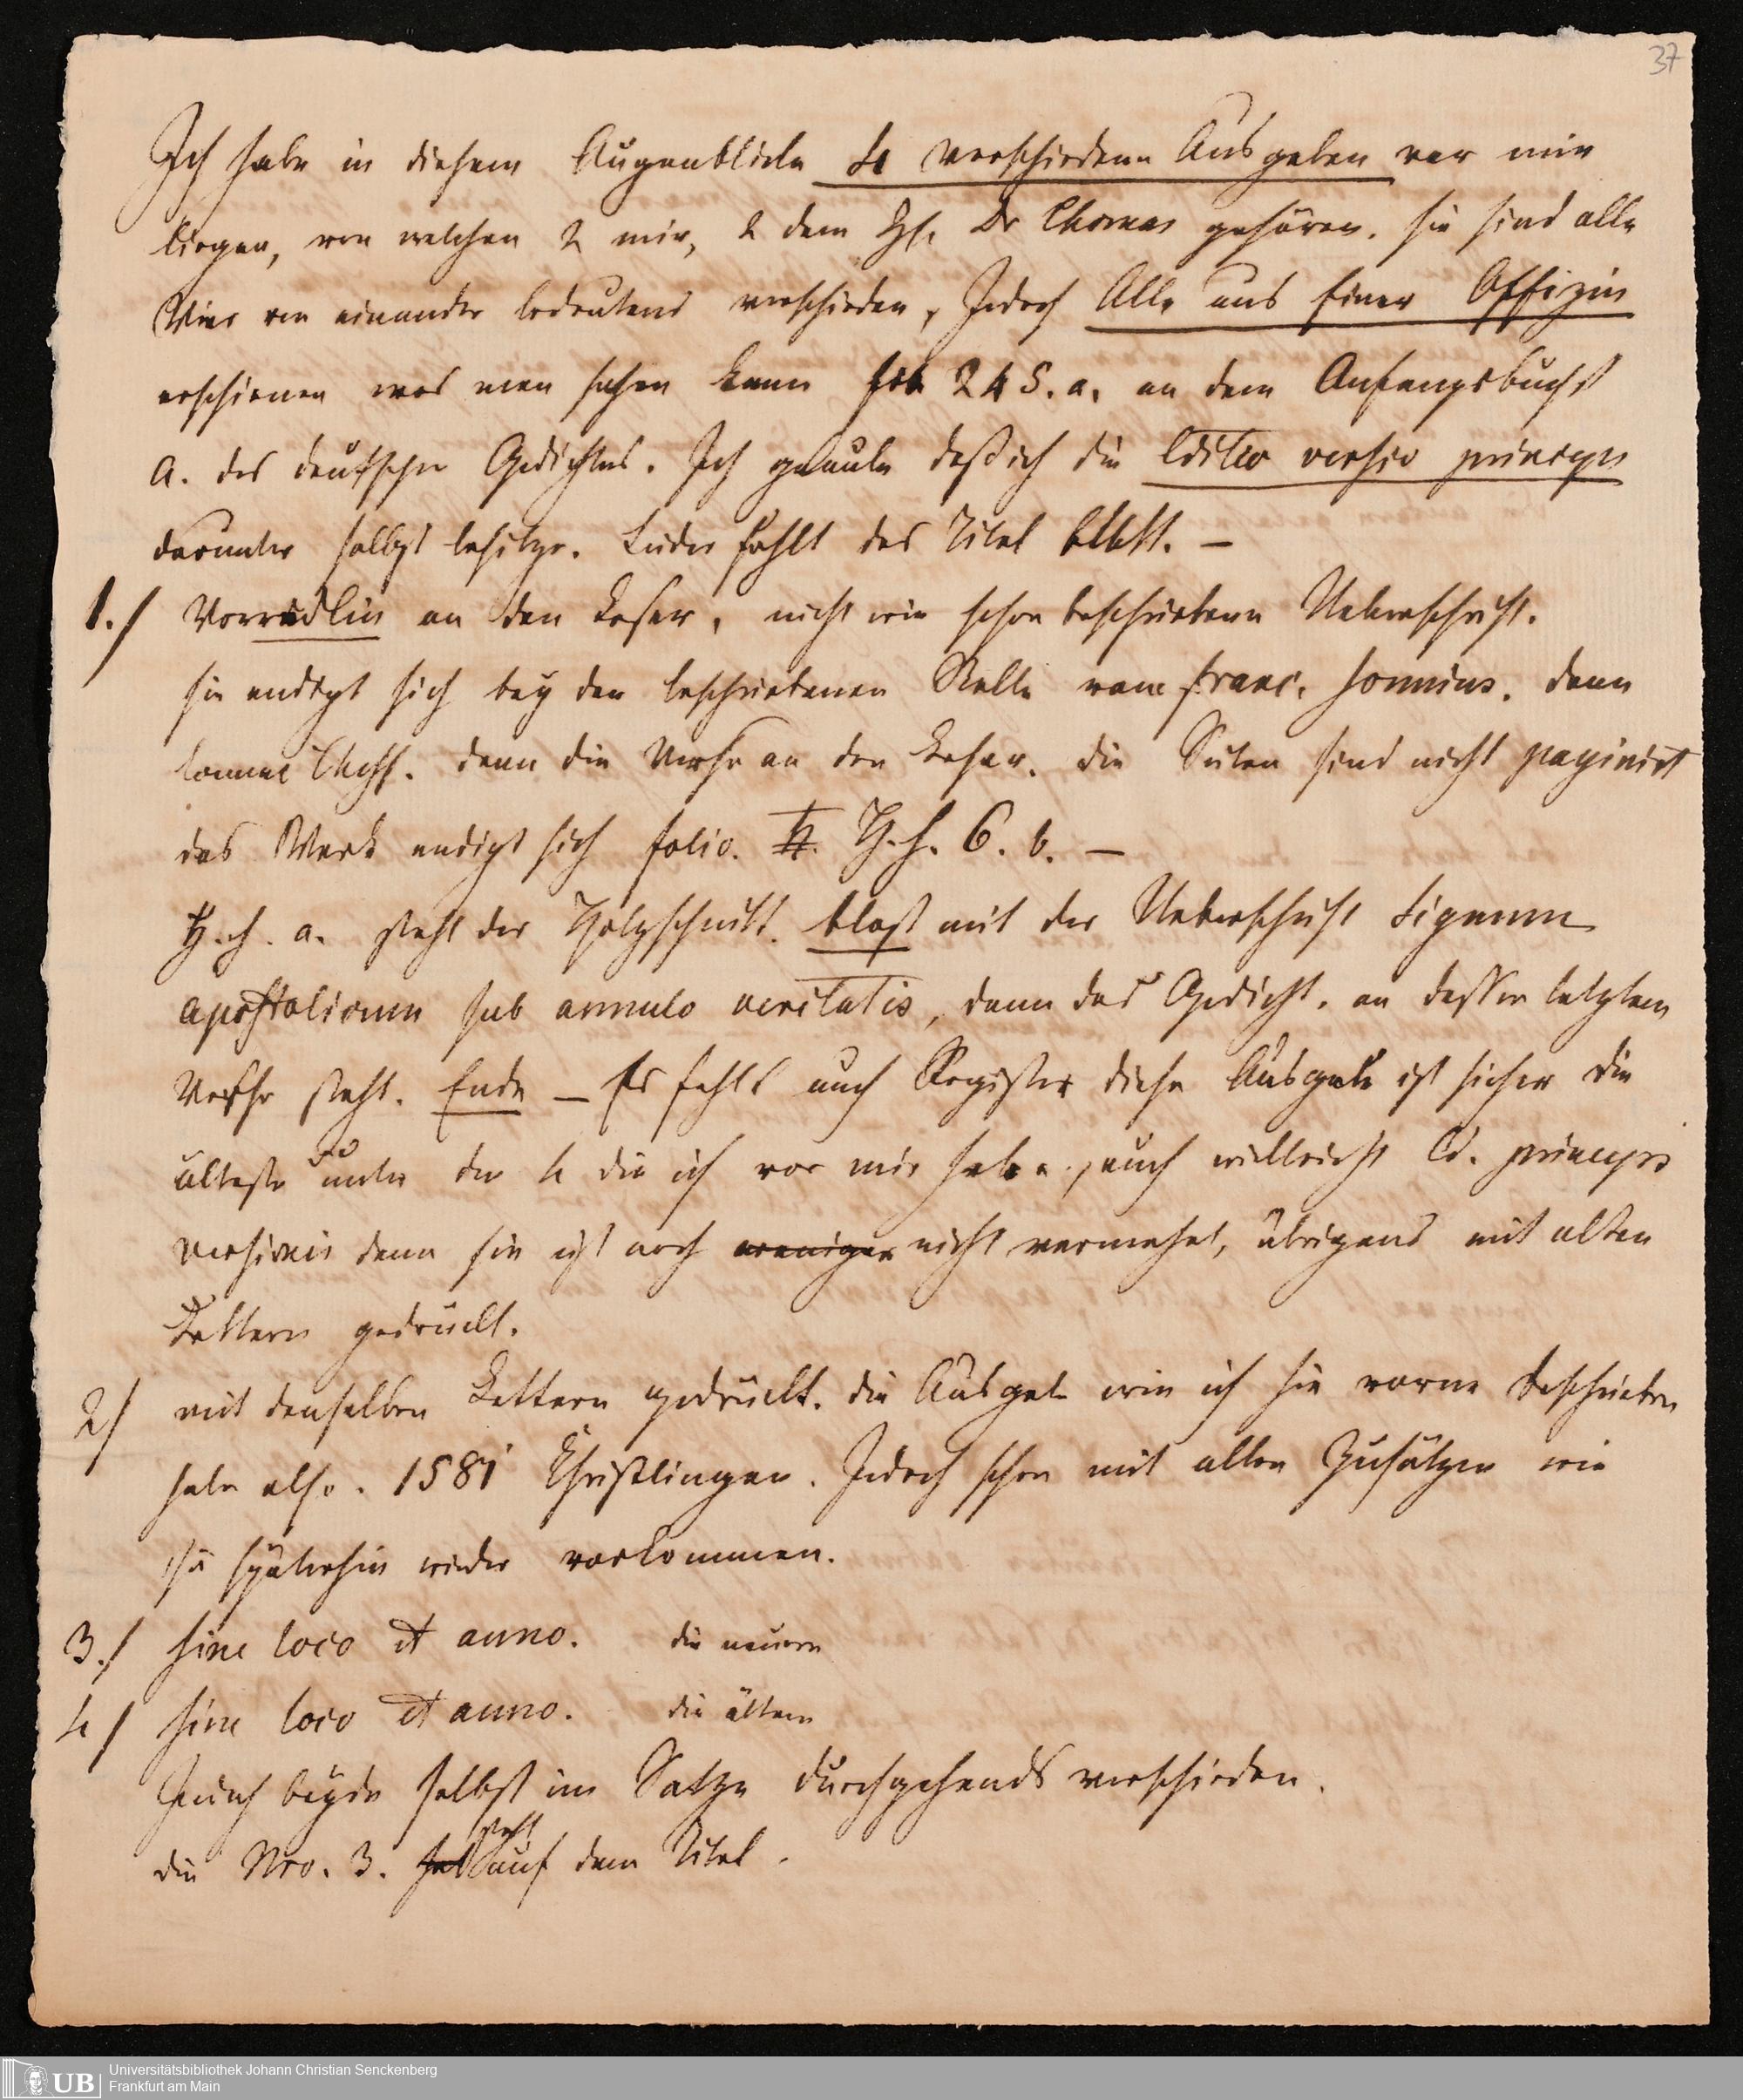 37
Ich habe in diesem Augenblicke 4 verschiedene Ausgaben vor mir
liegen, von welchen 2 mir, 2 dem H. Dr Thomas gehören. sie sind alle
Vier von einander bedeutend verschieden, Jedoch Alle aus Einer Offizin
erschienen was man sehen kann fol 245. a. an dem Anfangsbuchst
A. des deutschen Gedichtes. Ich glaube daß ich die Editio versio princeps
darunter selbst besitze. Leider fehlt das Titel blatt. –
1./ Vorredlin an den Leser, nicht wie schon beschriebene Ueberschrift.
sie endigt sich bey der beschriebenen Stelle vom Franc. Sonnius. dann
kommt dann die Verse an den Leser. die Seiten sind nicht paginirt
das Werk endigt sich folio. H. h. 6. b. –
H. h. a. steht der Holzschnitt. bloß mit der Ueberschrift Signum
apostolicum sub annulo veritatis, dann das Gedicht. an dessen letztem
Verse steht. Ende – Es fehlt auch Register diese Ausgabe ist sicher die
älteste unter den 4 die ich vor mir habe, auch vielleicht Ed. princeps
versionis denn sie ist noch weniger nicht vermehrt, übrigens mit alten
Lettern gedruckt.
2/ mit denselben Lettern gedruckt. die Ausgabe wie ich sie vorne beschrieben
habe also. 1581 Christlingen. Jedoch schon mit allen Zusätzen wie
sie späterhin wieder vorkommen.
3./ sine loco et anno. die neuern
4/ sine loco et anno. die ältern
Jedoch beyde selbst im Satze durchgehends verschieden.
die Nro. 3. hat steht auf dem Titel.